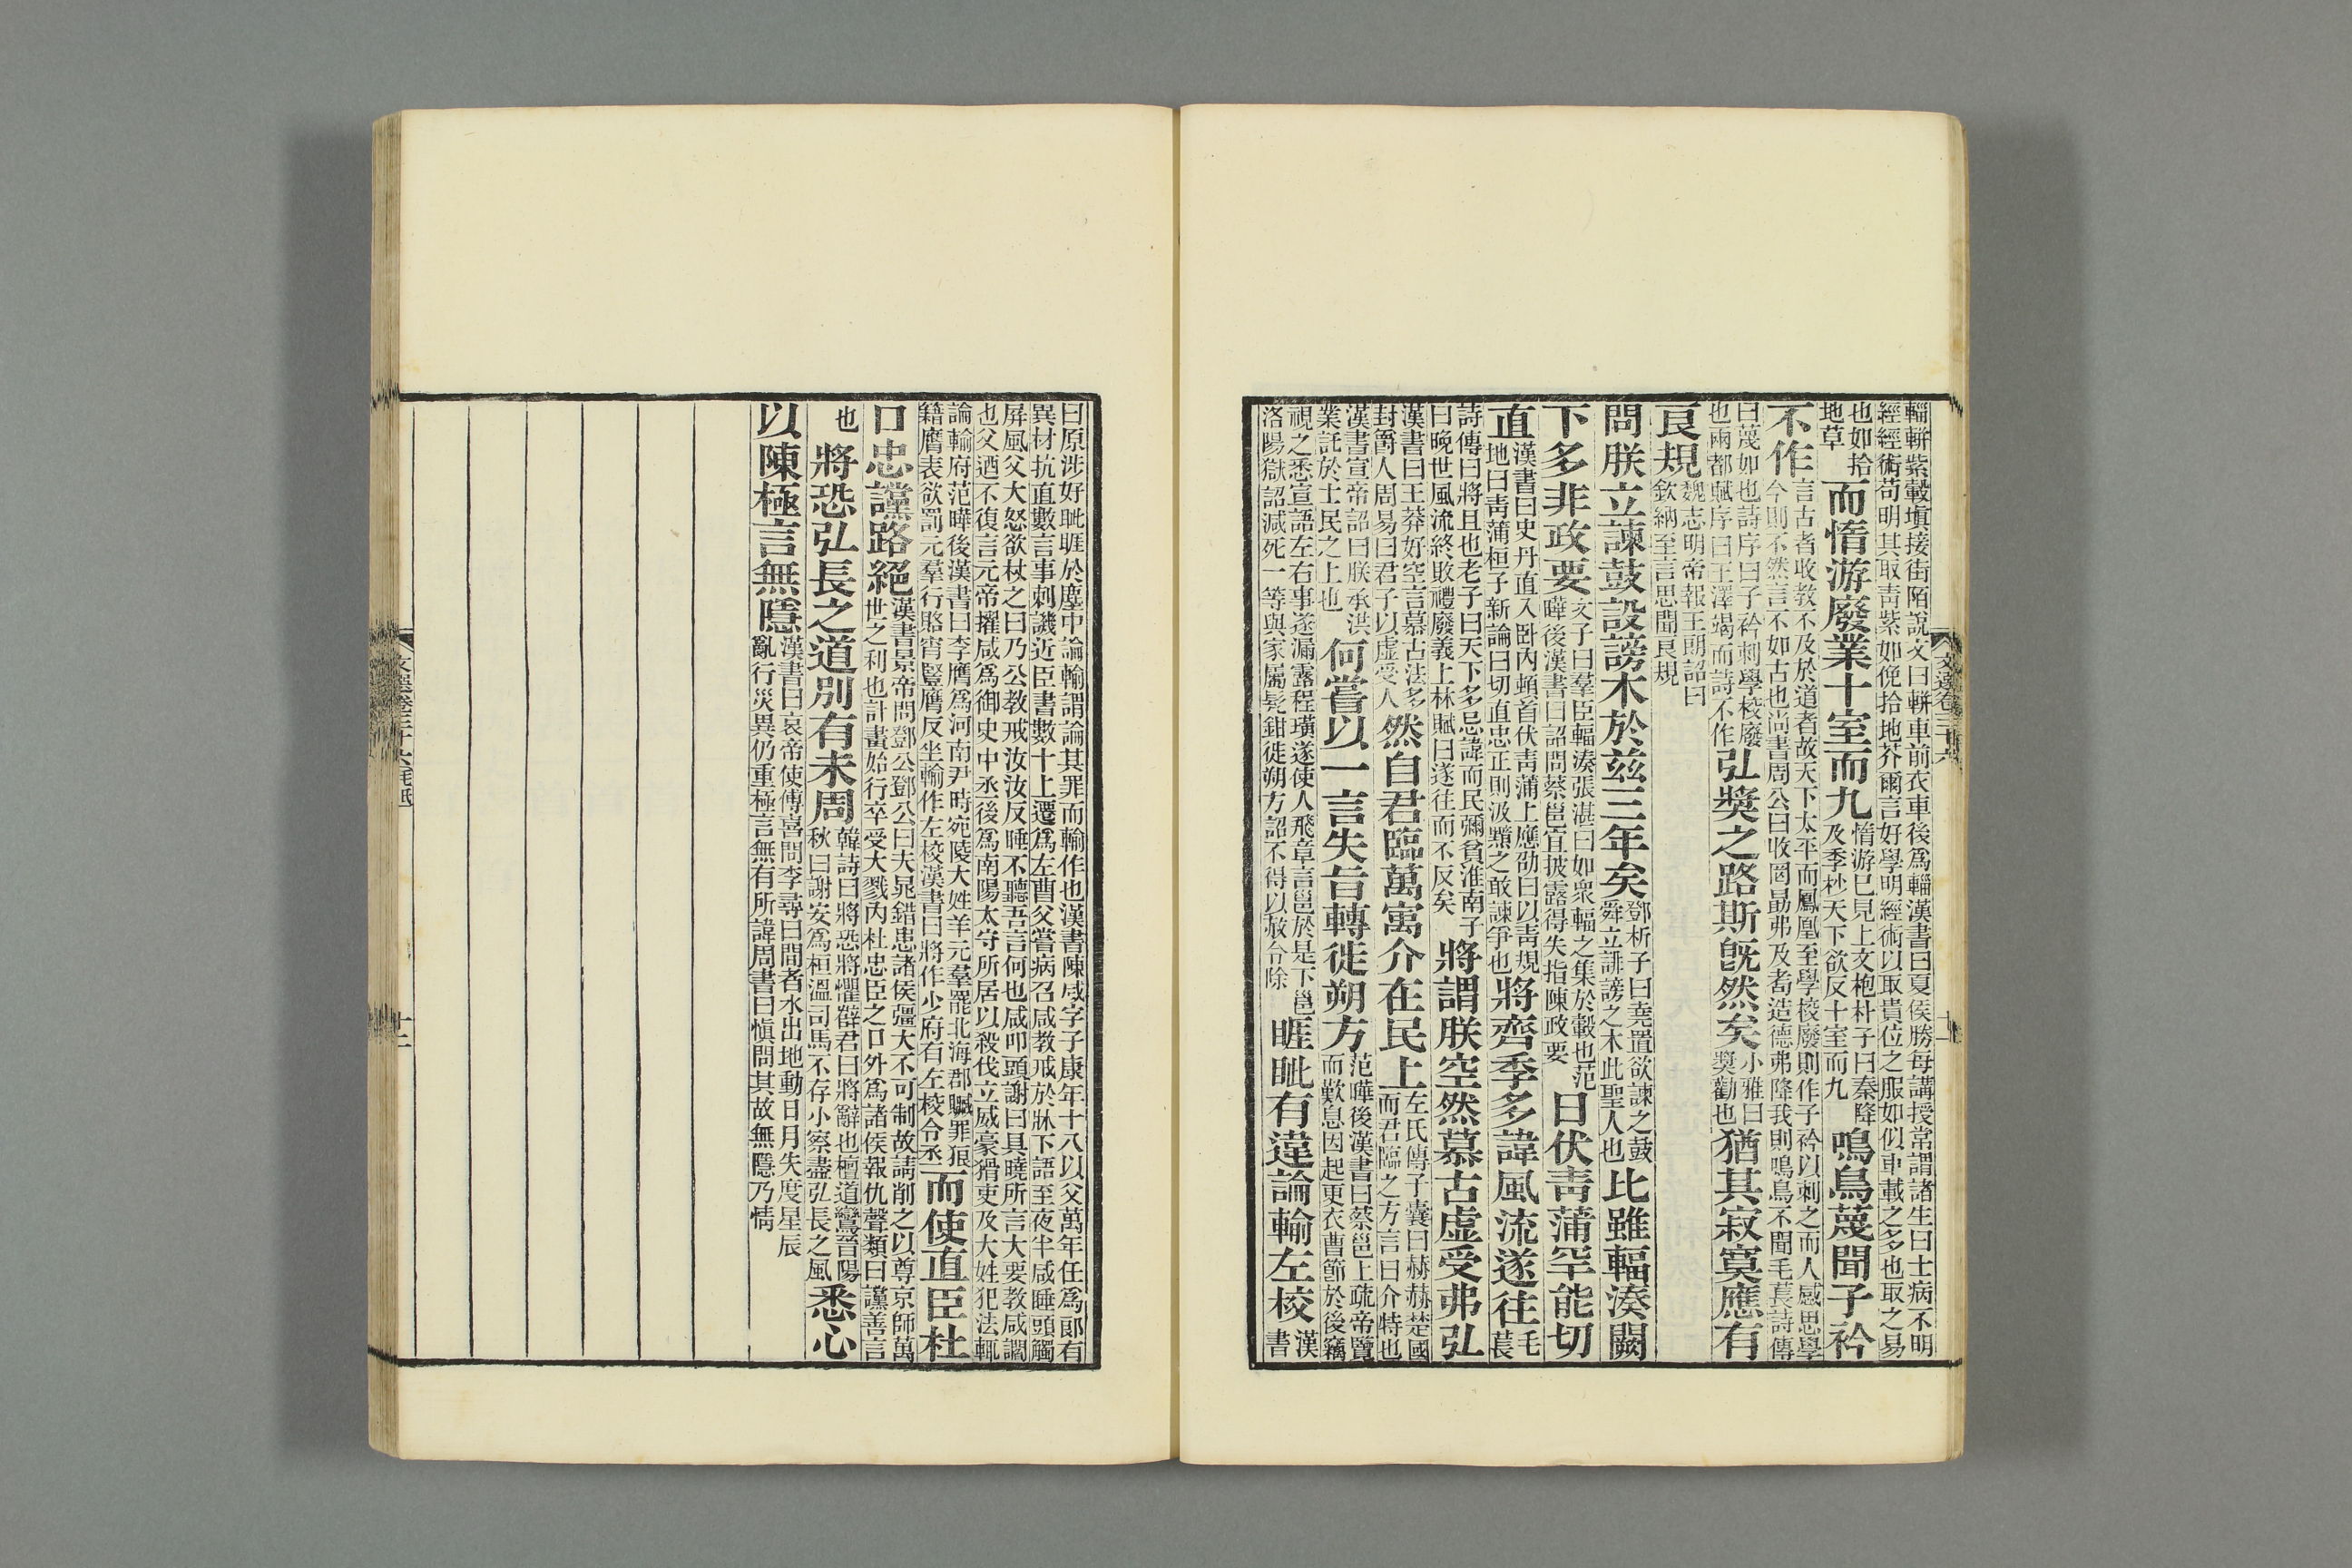 輜軿紫轂塡接街陌說文曰軿車前衣車後爲輜漢書曰夏侯勝每講授常謂諸生曰士病不明
經經術苟明其取青紫如俛拾地芥爾言好學明經術以取貴位之服如似車載之多也取之易
也如拾地草而惰游廢業十室而九惰游已見上文枹朴子曰秦降及季杪天下欲反十室而九鳴鳥蔑聞子衿
不作言古者收教不及於道者故天下太平而鳳凰至學校廢則作子衿以刺之而人感思學今則不然言不如古也尚書周公曰收罔勗弗及耇造德弗降我則鳴鳥不聞毛萇詩傳
曰蔑如也詩序曰子衿刺學校廢也兩都賦序曰王澤竭而詩不作弘奬之路斯旣然矣小雅曰奬勸也猶其寂寞應有
良規魏志明帝報王朗詔曰欽納至言思聞良規
問朕立諫鼓設謗木於兹三年矣鄧析子曰堯置欲諫之鼓舜立誹謗之木此聖人也比雖輻湊闕
下多非政要文子曰羣臣輻湊張湛曰如衆輻之集於轂也范曄後漢書曰詔問蔡邕宜披露得失指陳政要日伏青蒲罕能切
直漢書曰史丹直入卧內頓首伏青蒲上應劭曰以青規地曰青蒲桓子新論曰切直忠正則汲黯之敢諫爭也將齊季多諱風流遂往毛萇
詩傳曰將且也老子曰天下多忌諱而民彌貧淮南子曰晚世風流終敗禮廢義上林賦曰遂往而不反矣將謂朕空然慕古虛受弗弘
漢書曰王莽好空言慕古法多封爵人周易曰君子以虛受人然自君臨萬㝢介在民上左氏傳子囊曰赫赫楚國而君臨之方言曰介特也
漢書宣帝詔曰朕承洪業託於士民之上也何嘗以一言失旨轉徙朔方范曄後漢書曰蔡邕上疏帝覽而歎息因起更衣曹節於後竊
視之悉宣語左右事遂漏露程璜遂使人飛章言邕於是下邕洛陽獄詔減死一等與家屬髡鉗徙朔方詔不得以赦令除睚眦有違論輸左校漢書
曰原涉好眦睚於塵中論輸謂論其罪而輸作也漢書陳咸字子康年十八以父萬年任爲郎有
異材抗直數言事刺譏近臣書數十上遷爲左曹父嘗病召咸教戒於牀下語至夜半咸睡頭觸
屏風父大怒欲杖之曰乃公教戒汝汝反睡不聽吾言何也咸叩頭謝曰具曉所言大要教咸讇
也父迺不復言元帝擢咸爲御史中丞後爲南陽太守所居以殺伐立威豪猾吏及大姓犯法輒
論輸府范曄後漢書曰李膺爲河南尹時宛陵大姓羊元羣罷北海郡贓罪狼籍膺表欲罰元羣行賂宵豎膺反坐輸作左校漢書曰將作少府有左校令丞而使直臣杜
口忠讜路絕漢書景帝問鄧公鄧公曰夫晁錯患諸侯彊大不可制故請削之以尊京師萬世之利也計畫始行卒受大戮內杜忠臣之口外爲諸侯報仇聲類曰讜善言
也將恐弘長之道別有未周韓詩曰將恐將懼薛君曰將辭也檀道鸞晉陽秋曰謝安爲桓溫司馬不存小察盡弘長之風悉心
以陳極言無隱漢書曰哀帝使傅喜問李尋曰間者水出地動日月失度星辰亂行災異仍重極言無有所諱周書曰愼問其故無隱乃情
文選卷三十六
十二